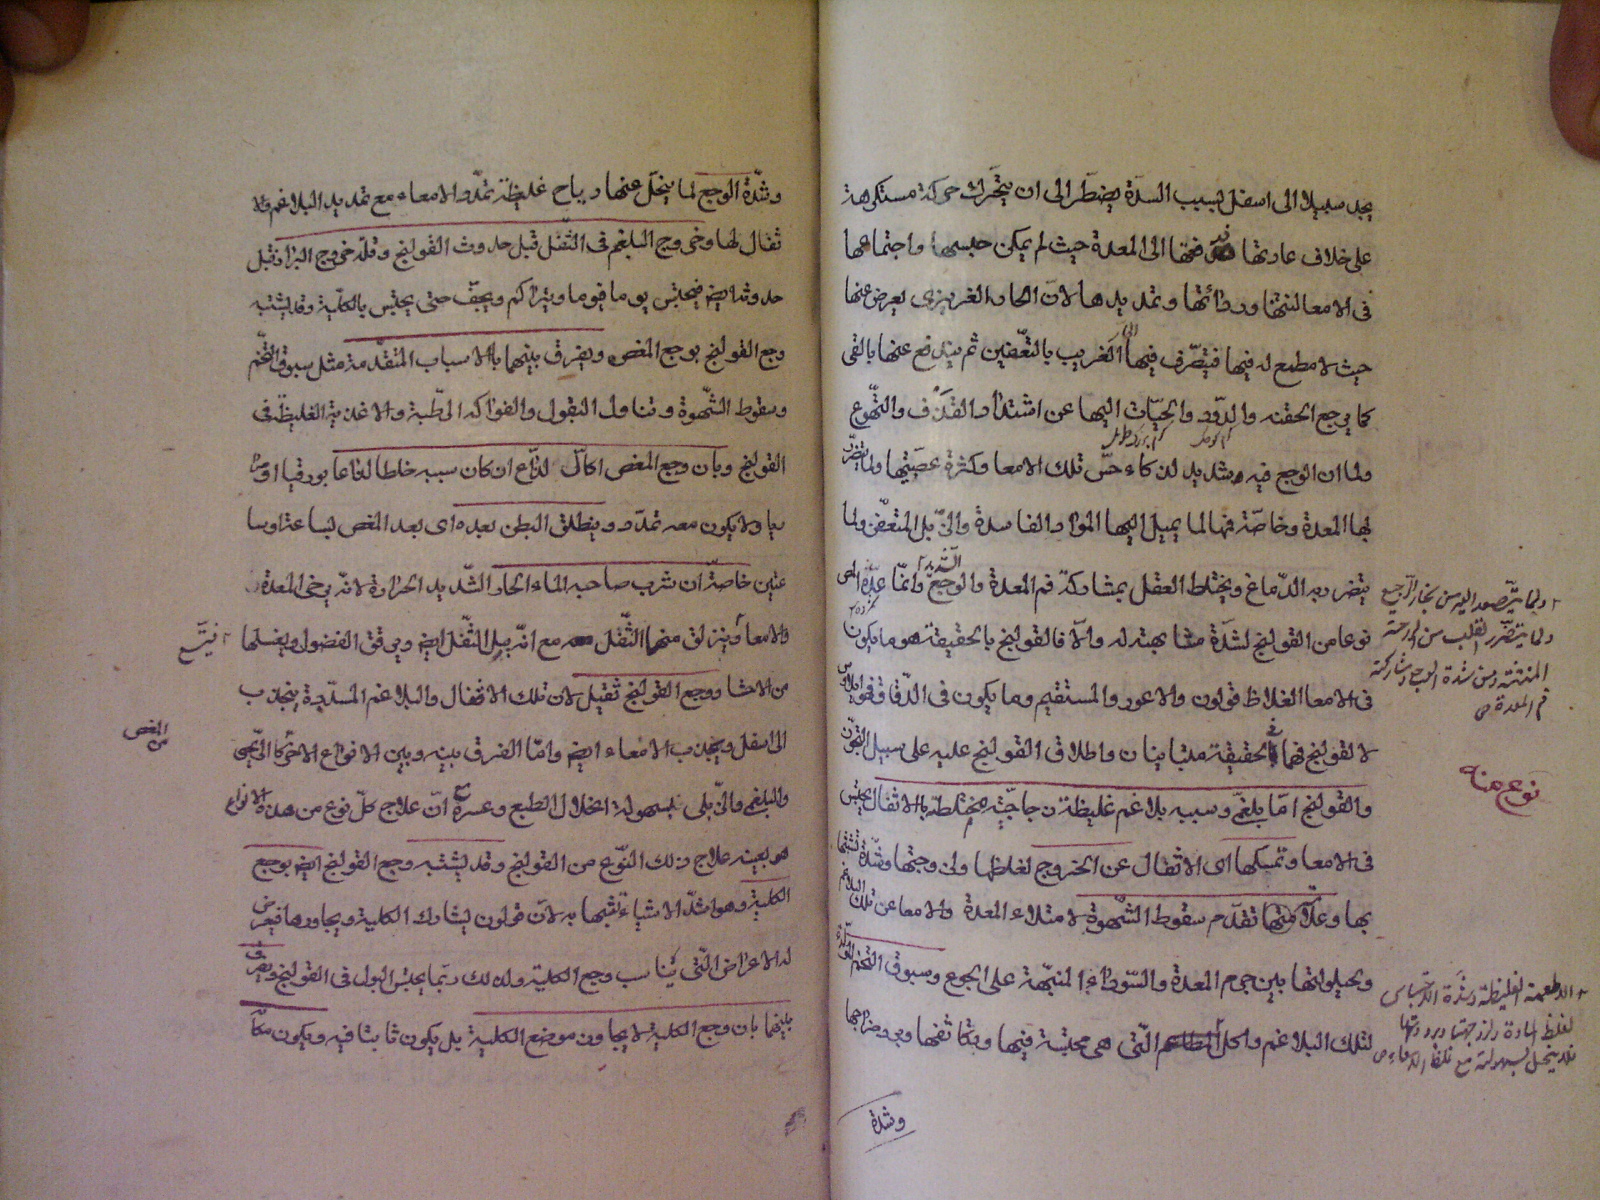 يجد سبيلا الى اسفل بسبب السدّة يضطر الى ان يتحرك حركة مستكرهة
على خلاف عادتها فيدفعها الى المعدة حيث لم يمكن حبسها واجتماعها
فى الامعا لنتنها وردائتها وتمديدها لانّ الحار الغريزى يعرض عنها
حيث لا مطمع له فيها فيتصرّف فيها الحار الغريب بالتعفين ثم يندفع عنها بالقى
كما يرجع الحقنه والدّود والحيّات اليها عن اشتداد القذف والتهوّع
ولما ان الوجع فيه شديد لذكاء حسّ تلك الامعا وكثرة عصبيتها ولما يتضرّر
بها المعدة وخاصّة فمها لما يميل اليها الموادّ الفاسدة والزبل المتعفّن ولما
يتضرر به الدّماغ ويختلط العقل بمشاركة فم المعدة والوجع الشديد وانّما عدّه المص
نوعا من القولنج لشدّة مشابهته له والّا فالقولنج بالحقيقة هو ما يكون
فى الامعا الغلاظ قولون والاعور والمستقيم وما يكون فى الدّقاق فهو ايلاوس
لا قولنج فهما فى الحقيقة متباينان واطلاق القولنج عليه على سبيل التجوّز
والقولنج امّا بلغمىّ وسببه بلاغم غليظة زجاجيّة مختلطة بالاثفال يحتبس
فى الامعا وتمسكها اى الاثفال عن الخروج لغلظها ولزوجتها وشدّة تشبثها
بها وعلامتها تقدّم سقوط الشّهوة لامتلاء المعدة والامعا عن تلك البلاغم
وحيلولتها بين جرم المعدة والسّوداء المنبّهة على الجوع وسبوق التخم المولّدة
لتلك البلاغم واكل التّى هى محتبسة فيها وبكاثفها وبرد مزاجها
وشدة
ولما يتصعد اليه من بخار الرجيع
ولما يتضرّر القلب من الرايحة
المنتنة ومن شدة الوجع ومشاركة
فم المعدة ص
نوع منه
الاطعمة الغليظة وشدّة الاحتباس
لغلظ المادة ولزوجتها وبرودتها
فلا ينحل بسهولة مع غلظ الامعاء ص
وشدّة الوجع لما ينحلّ عنها رياح غليظة تمدّد الامعاء مع تمديد البلاغم والا
ثفال لها وخروج البلغم فى الثّفل قبل حدوث القولنج وقلّة خروج البراز قبل
حدوثه ايض فيحتبس يوما فيوما ويتراكم ويجفّ حتى يحتبس بالكلّية وقد يشتبه
وجع القولنج بوجع المغص ويفرق بينهما بالاسباب المتقدّمة مثل سبوق التخم
وسقوط الشّهوة وتناول البقول والفواكه الرطبة والاغذية الغليظة فى
القولنج وبان وجع المغص اكّال لذّاع ان كان سببه خلطا لذاعا بورقيا او مرا
ريا ولا يكون معه تمدّد وينطلق البطن بعده اى بعد المغص لساعته او سا
عتين خاصّة ان شرب صاحبه الماء الحار الشّديد الحرارة لانّه يرخى المعدة
والامعا وينزلق منها الثّفل مع انّه يبل الثّفل ايض ويرقق الفضول ويغسلها
من الاحشا ووجع القولنج ثقيل لان تلك الاثفال والبلاغم المسدّدة ينجذب
الى اسفل ويجذب الامعاء ايض وامّا الفرق بينه وبين الانواع الاخر كالريحى
والبلغمى والزبلى بسهولة انحلال الطبع وعسره مع انّ علاج كلّ نوع من هذه الانواع
هو بعينه علاج ذلك النّوع من القولنج وقد يشتبه وجع القولنج ايض بوجع
الكلية وهو اشدّ الاشياء شبها به لانّ قولون يشارك الكلية ويجاورها فيعرض
له الاعراض التّى يناسب وجع الكلية ولذلك ربّما يحتبس البول فى القولنج ويفرق
بينهما بان وجع الكلية لا يجاوز موضع الكلية بل يكون ثابتا فيه ويكون
فيتّسع
المغص